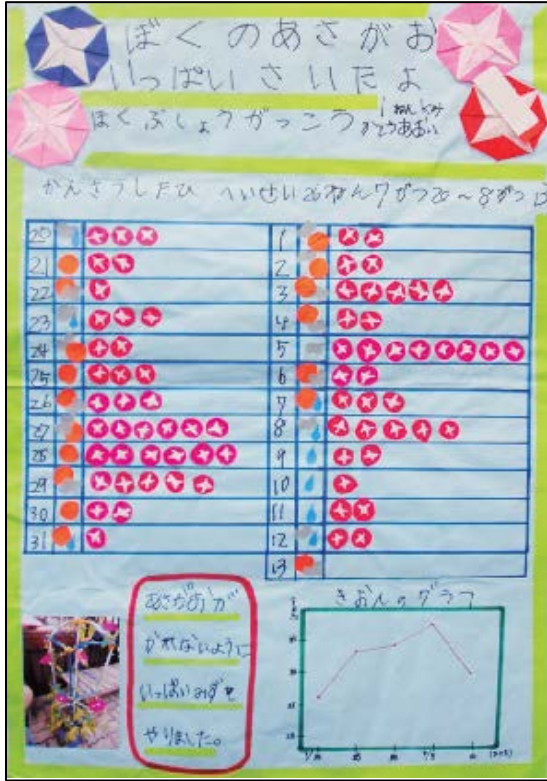 ぼくのあさがお
いっぱいさいたよ
ほくぶしょうがっこう
かんさつしたひ へいせい26ねん7がつ20〜8がつ13
20
21
22
23
24
25
26
27
28
29
30
31
1
2
3
4
5
6
7
8
9
10
11
12
13
あさがおが
かれないように
いっぱいみずを
やりました。
きおんのグラフ